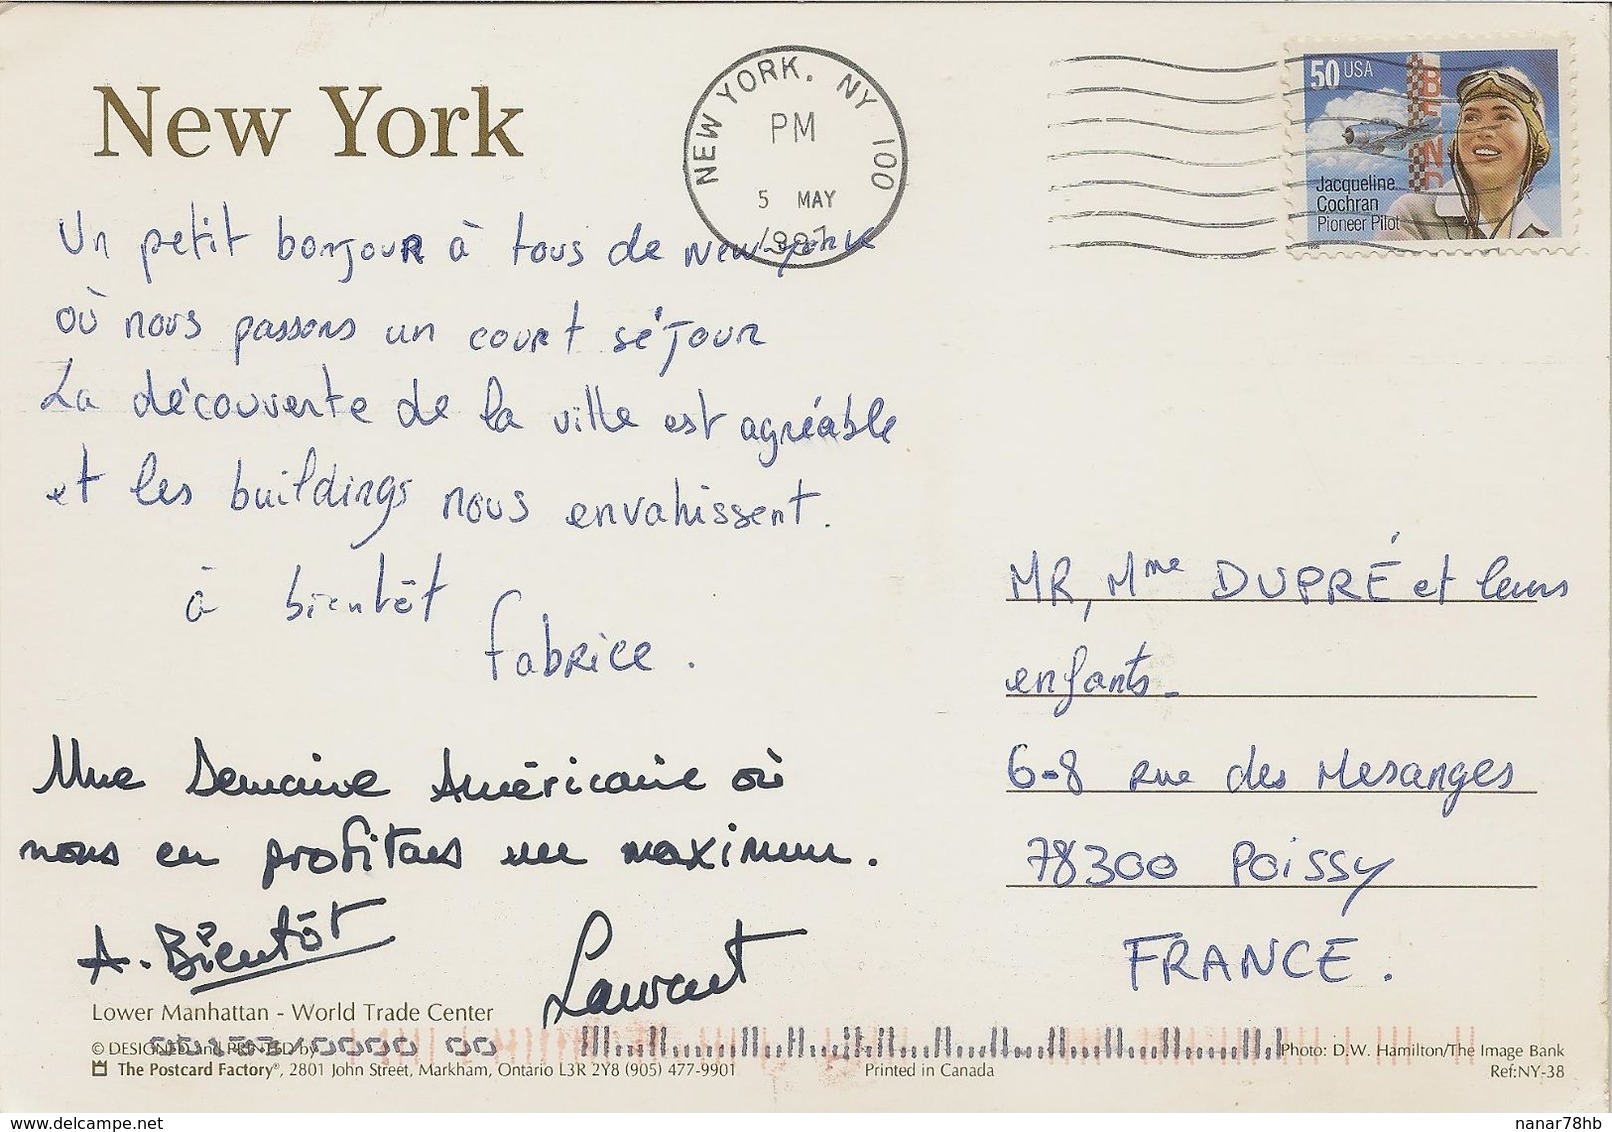 New York
NEW YORK. NY 100
PM
5 MAY
1997
50 USA
BEND
Jacqueline
Cochran
Pioneer Pilot
1996
Un petit bonjour à tous de New-york
où nous passons un court séjour
La découverte de la ville est agréable
et les buildings nous envahissent.
à bientôt
fabrice.
Une Semaine Américaine où
nous en profitons un maximum.
A. Bientôt
Laurent
MR, Mme DUPRÉ et leurs
enfants_
6-8 rue des Mesanges
78300 POISSY
FRANCE.
Lower Manhattan - World Trade Center
© DESIGNED and PRINTED by
The Postcard Factory®, 2801 John Street, Markham, Ontario L3R 2Y8 (905) 477-9901
Printed in Canada
Photo: D.W. Hamilton/The Image Bank
Ref:NY-38
www.delcampe.net
nanar78hb